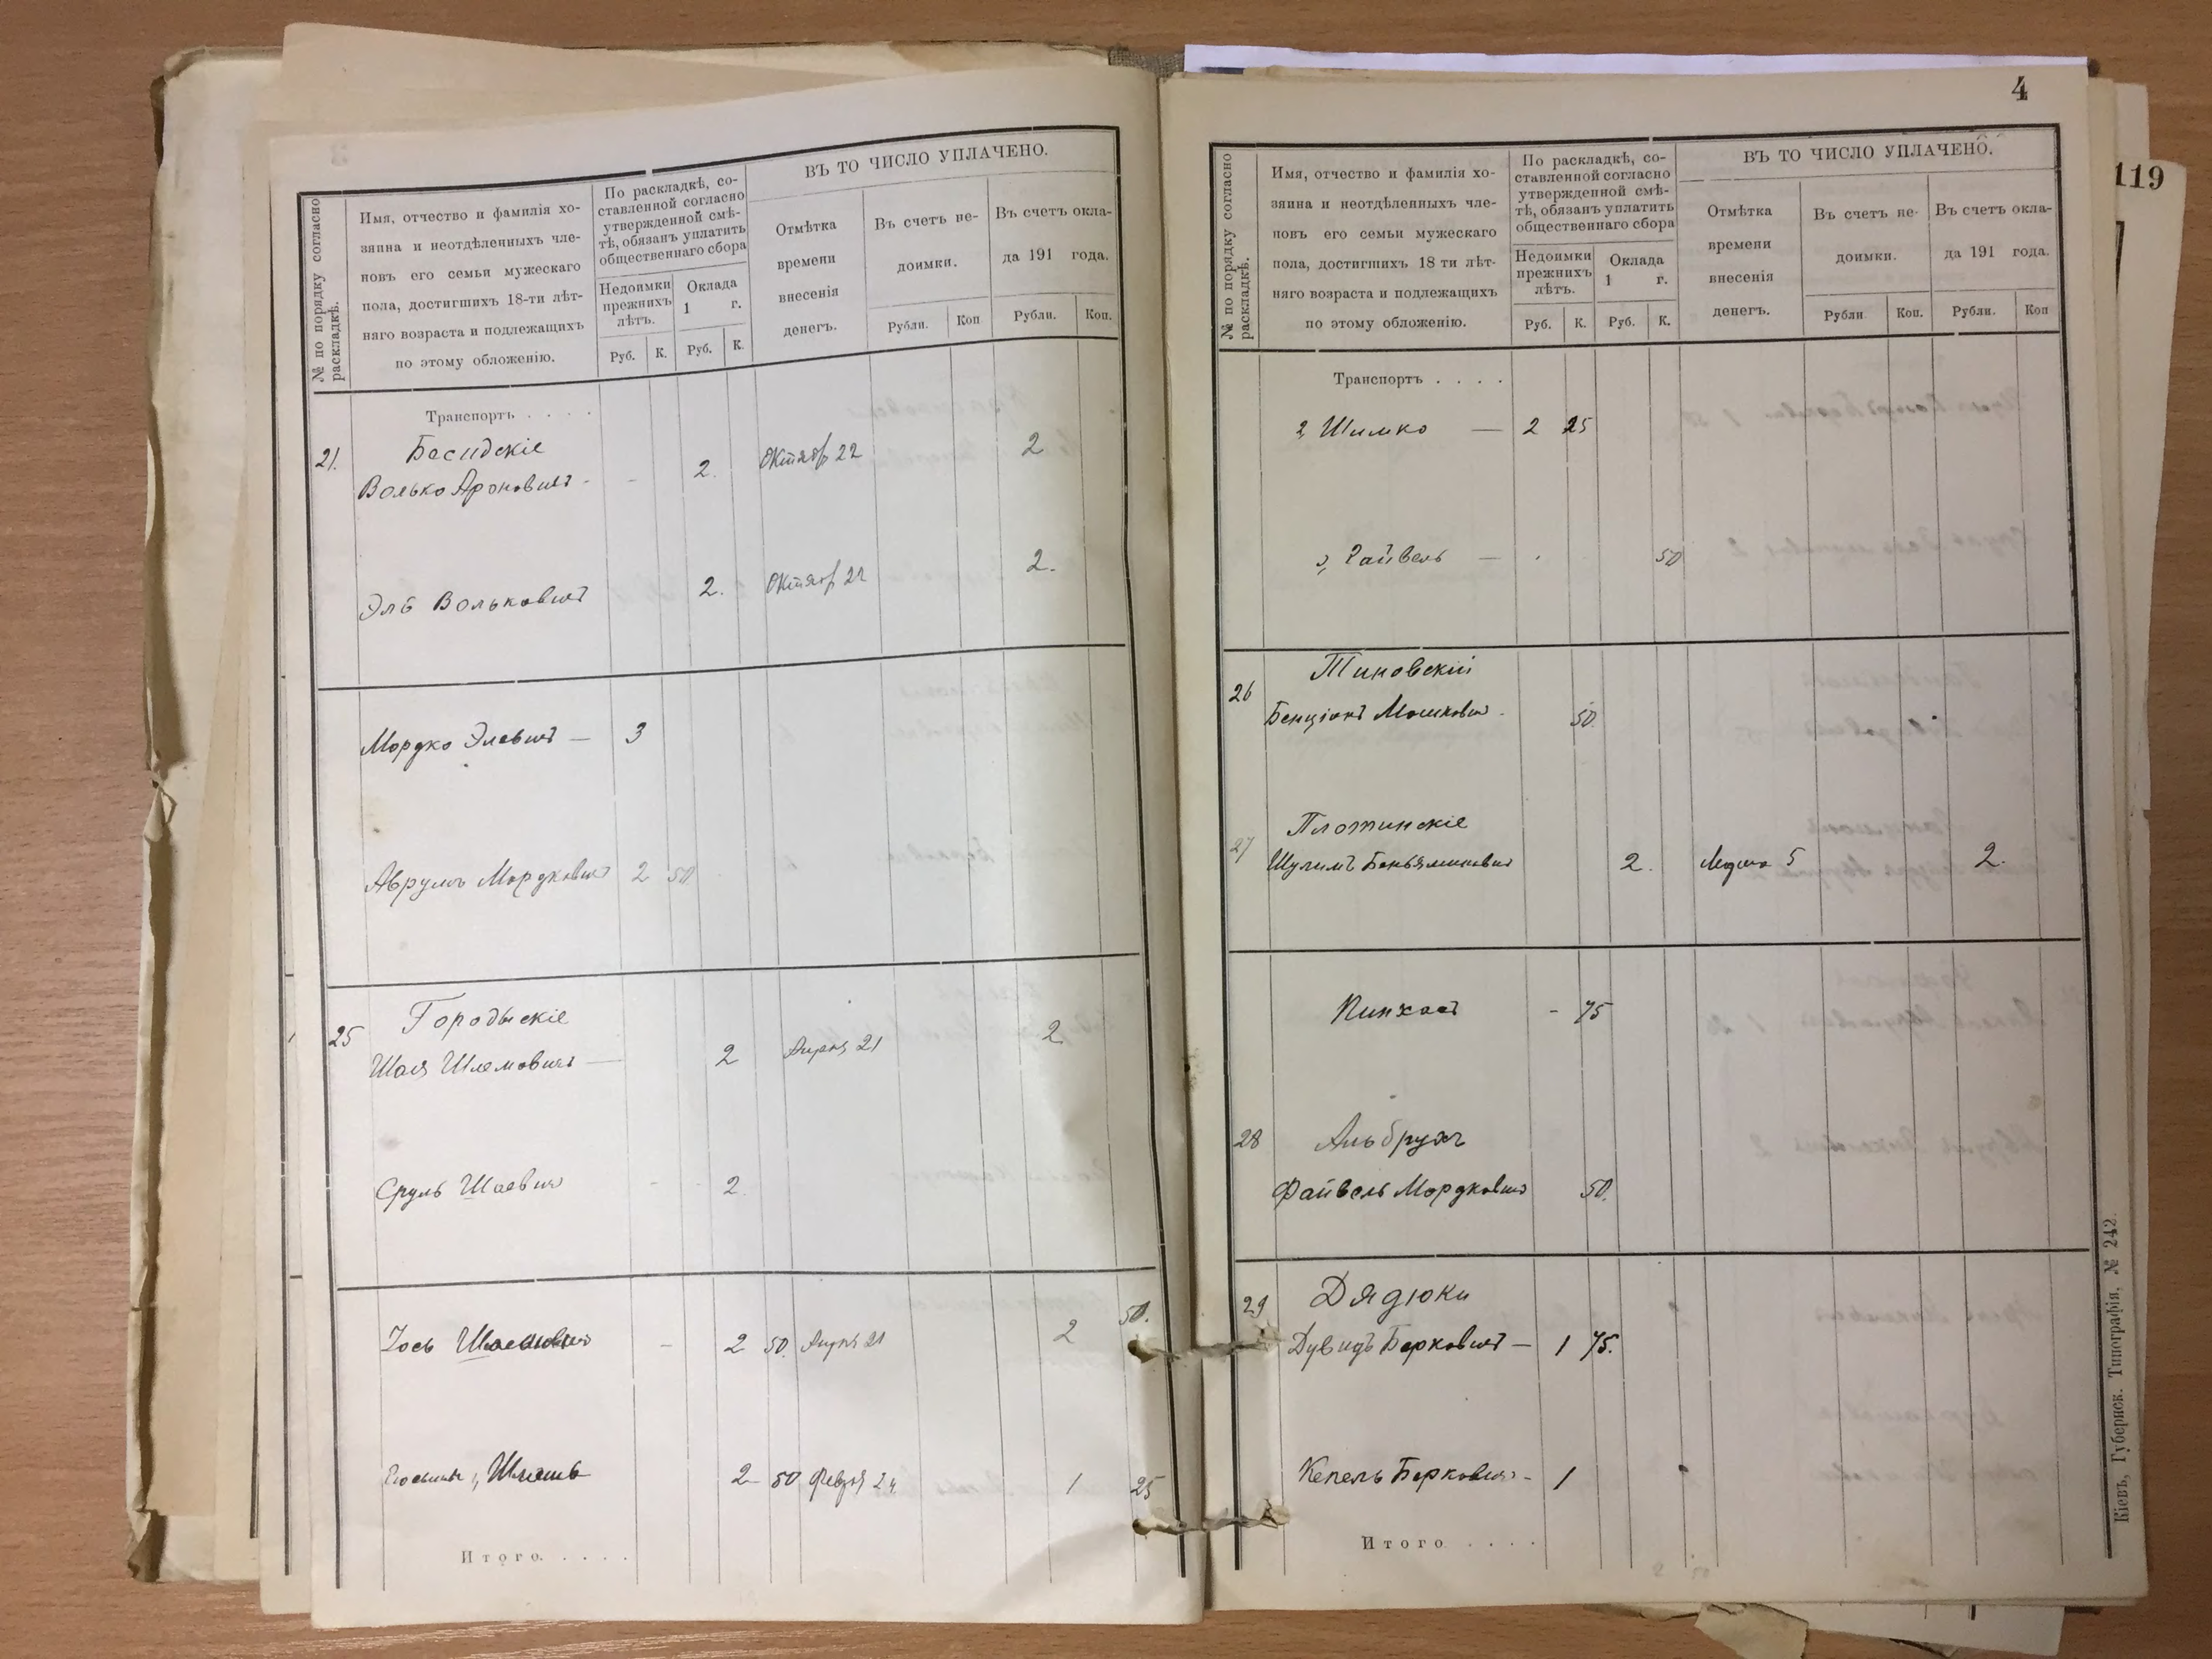 № по порядку согласно раскладкѣ.
Имя, отчество и фамилія хо-
зяина и неотдѣленныхъ чле-
новъ его семьи мужескаго
пола, достигшихъ 18-ти лѣт-
няго возраста и подлежащихъ
по этому обложенію.
По раскладкѣ, со-
ставленной согласно
утвержденной смѣ-
тѣ, обязанъ уплатить
общественнаго сбора
Недоимки
прежнихъ
лѣтъ.
Оклада
1 г.
Руб. К. Руб. К.
ВЪ ТО ЧИСЛО УПЛАЧЕНО.
Отмѣтка
времени
внесенія
денегъ.
Въ счетъ не-
доимки.
Въ счетъ окла-
да 191 года.
Рубли. Коп Рубли. Коп.
Транспортъ . . . .
21. Басидскіе
Волько Ароновичъ - - 2. Октябр 22 2
Эля Вольковичъ 2. Октябр 22 2.
Мордко Элевичъ — 3
Аврумъ Мордковичъ 2 50
25 Городыскіе
Шая Шлемовичъ — 2 Апрѣл 21 2
Сруль Шаевичъ - - 2.
Іось - 2 50. Апрѣл 21 2 50.
2 50 Феврл 24 1 25
Итого. . . . .
4
119
№ по порядку согласно раскладкѣ.
Имя, отчество и фамилія хо-
зяина и неотдѣленныхъ чле-
новъ его семьи мужескаго
пола, достигшихъ 18 ти лѣт-
няго возраста и подлежащихъ
по этому обложенію.
По раскладкѣ, со-
ставленной согласно
утвержденной смѣ-
тѣ, обязанъ уплатить
общественнаго сбора
Недоимки
прежнихъ
лѣтъ.
Оклада
1 г.
Руб. К. Руб. К.
ВЪ ТО ЧИСЛО УПЛАЧЕНО.
Отмѣтка
времени
внесенія
денегъ.
Въ счетъ не-
доимки.
Въ счетъ окла-
да 191 года.
Рубли Коп. Рубли. Коп
Транспортъ . . . .
Шимко — 2 25
Файвель — 50
26 Тиновскій
Бенціонъ Мошковичъ 50.
27 Плотинскіе
Шулимъ Беньяминовичъ 2. 5 2.
Пинхасъ - 75
28 Альбрухъ
Файвель Мордковичъ 50.
29 Дядюки
Дувидъ Берковичъ — 1 75.
Кепель Берковичъ - 1
Итого . . . .
Кіевъ, Губернск. Типографія, № 242.